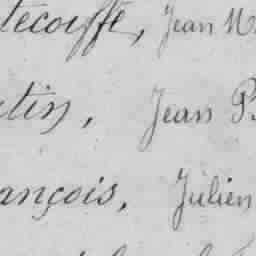 tecoiffe, Jean N
tin, Jean P
ançois, Julien